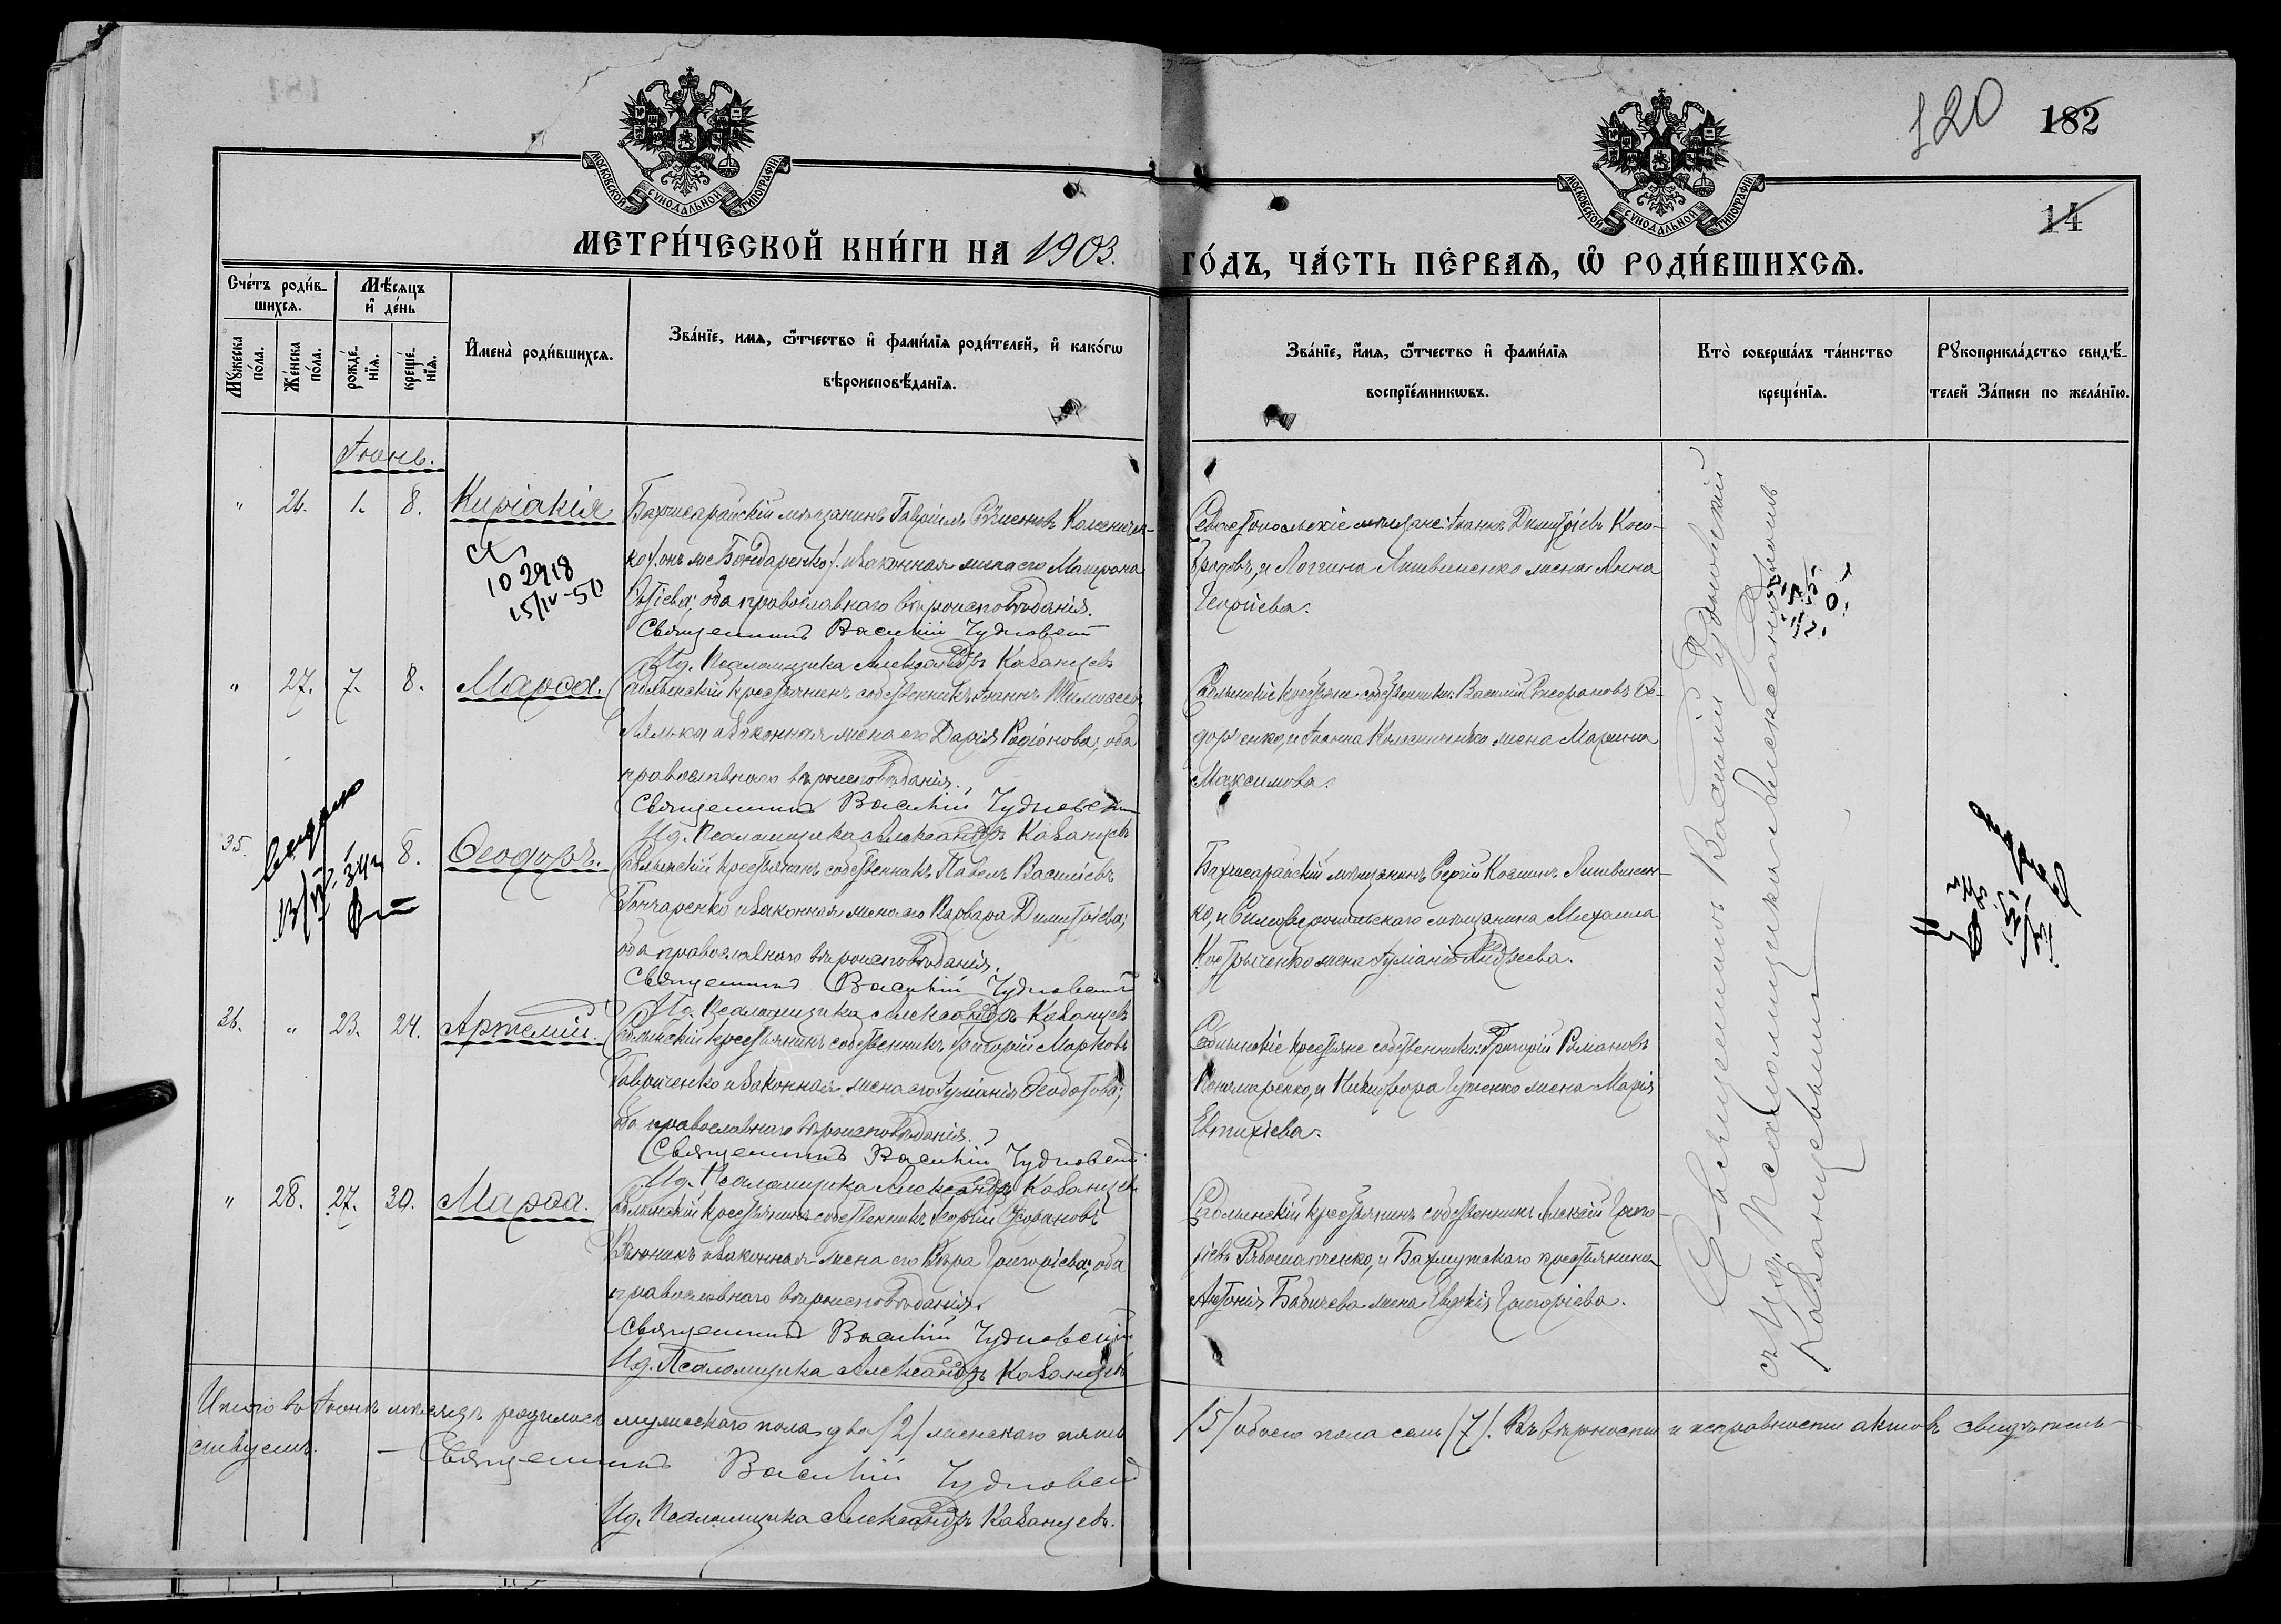 120
182
14
МОСКОВСКОЙ СУНОДАЛЬНОЙ ТИПОГРАФІИ
МОСКОВСКОЙ СУНОДАЛЬНОЙ ТИПОГРАФІИ
МЕТРИ́ЧЕСКОЙ КНИ́ГИ НА 1903. ГО́ДЪ, ЧА́СТЬ ПЕ́РВАЯ, Ѡ РОДИ́ВШИХСЯ.
Сче́тъ роди́вшихся.
Мꙋ́жеска по́ла.
Же́нска по́ла.
Мѣ́сяцъ и де́нь
рожде́нїя.
креще́нїя.
Имена̀ роди́вшихся.
Зва́нїе, имя, ѿтчество и фами́лїя роди́телей, и како́гѡ
вѣроисповѣ́данїя.
Зва́нїе, и́мя, ѿтчество и фами́лїя
воспрїе́мникѡвъ.
Кто̀ соверша́лъ та́инство
креще́нїя.
Рꙋкоприкла́дство свидѣ́-
телей За́писи по жела́нїю.
Іюнь.
" 26. 1. 8. Киріакія
Бахчисарайскій мѣщанинъ Гавріилъ Коленичен-
ко /онъ же Бондаренко/ и законная жена его Матрона
оба православнаго вѣроисповѣданія.
Священникъ Василій Чудновскій
И.д. Псаломщика Александръ Казанцевъ
Севастопольскіе мѣщане: Іоаннъ Димитріевъ Косо-
и Логгина Литвиненко жена Анна
Георгіева.
10 2918
15/IV-50
" 27. 7. 8. Марѳа.
Саблынскій крестьянинъ собственникъ Іоаннъ
Лялька и законная жена его Дарія Родіонова, оба
православнаго вѣроисповѣданія.
Священникъ Василій Чудновскій
И.д. Псаломщика Александръ Казанцевъ
Саблынскіе крестьяне собственники: Василій Стефановъ Си-
доренко, и Іоанна Колесниченко жена Марина
Максимова.
35. 8. Ѳеодоръ.
Саблынскій крестьянинъ собственникъ Павелъ Василіевъ
Гончаренко и законная жена его Варвара Димитріева;
оба православнаго вѣроисповѣданія.
Священникъ Василій Чудновскій
И.д. Псаломщика Александръ Казанцевъ
Бахчисарайскій мѣщанинъ Сергій Косминъ Литвинен-
ко, и Симферопольскаго мѣщанина Михаила
жена Іуліанія Андреева.
36. " 23. 24. Артемій.
Саблынскій крестьянинъ собственникъ Григорій Марковъ
Гавриченко и законная жена его Іуліанія Ѳеодотова;
оба православнаго вѣроисповѣданія.
Священникъ Василій Чудновскій
И.д. Псаломщика Александръ Казанцевъ
Саблынскіе крестьяне собственники: Григорій Романовъ
и Никифора Гуженко жена Марія
Евтихіева.
" 28. 27. 30. Марѳа.
Саблынскій крестьянинъ собственникъ Георгій Стефановъ
и законная жена его Вѣра Григоріева; оба
православнаго вѣроисповѣданія.
Священникъ Василій Чудновскій
И.д. Псаломщика Александръ Казанцевъ
Саблынскій крестьянинъ собственникъ Алексій Григо-
ріевъ Рябошапченко, и Бахмутскаго крестьянина
Антонія Бабичева жена Евдокія Григоріева.
Священникъ Василій Чудновскій
съ И.д. Псаломщика Александромъ
Казанцевымъ
Итого въ Іюнѣ мѣсяцѣ родилось мужескаго пола два /2/ женскаго пять /5/ обоего пола семь /7/. Въ вѣрности и исправности актовъ свидѣтель-
ствуемъ. — Священникъ Василій Чудновскій
И.д. Псаломщика Александръ Казанцевъ.